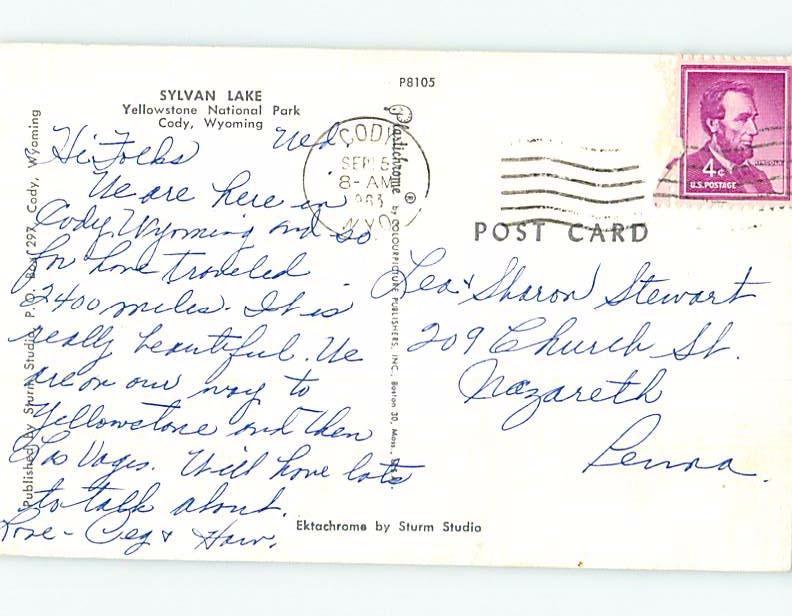 P8105
SYLVAN LAKE
Yellowstone National Park
Cody, Wyoming
Hi Folks Wed.
We are here in
Cody, Wyoming and so
far have traveled
2400 miles. It is
really beautiful. We
are on our way to
Yellowstone and then
Las Vages. Will have lots
to talk about.
Love - Peg & How.
Published by Sturm Studio, P.O. Box 297, Cody, Wyoming
Plastichrome ® by COLOURPICTURE PUBLISHERS, INC., Boston 30, Mass.
CODY
SEP 5
8-AM
1963
WYO
LINCOLN
4¢
U.S. POSTAGE
POST CARD
Lea & Sharon Stewart
209 Church St.
Nazareth
Penna.
Ektachrome by Sturm Studio